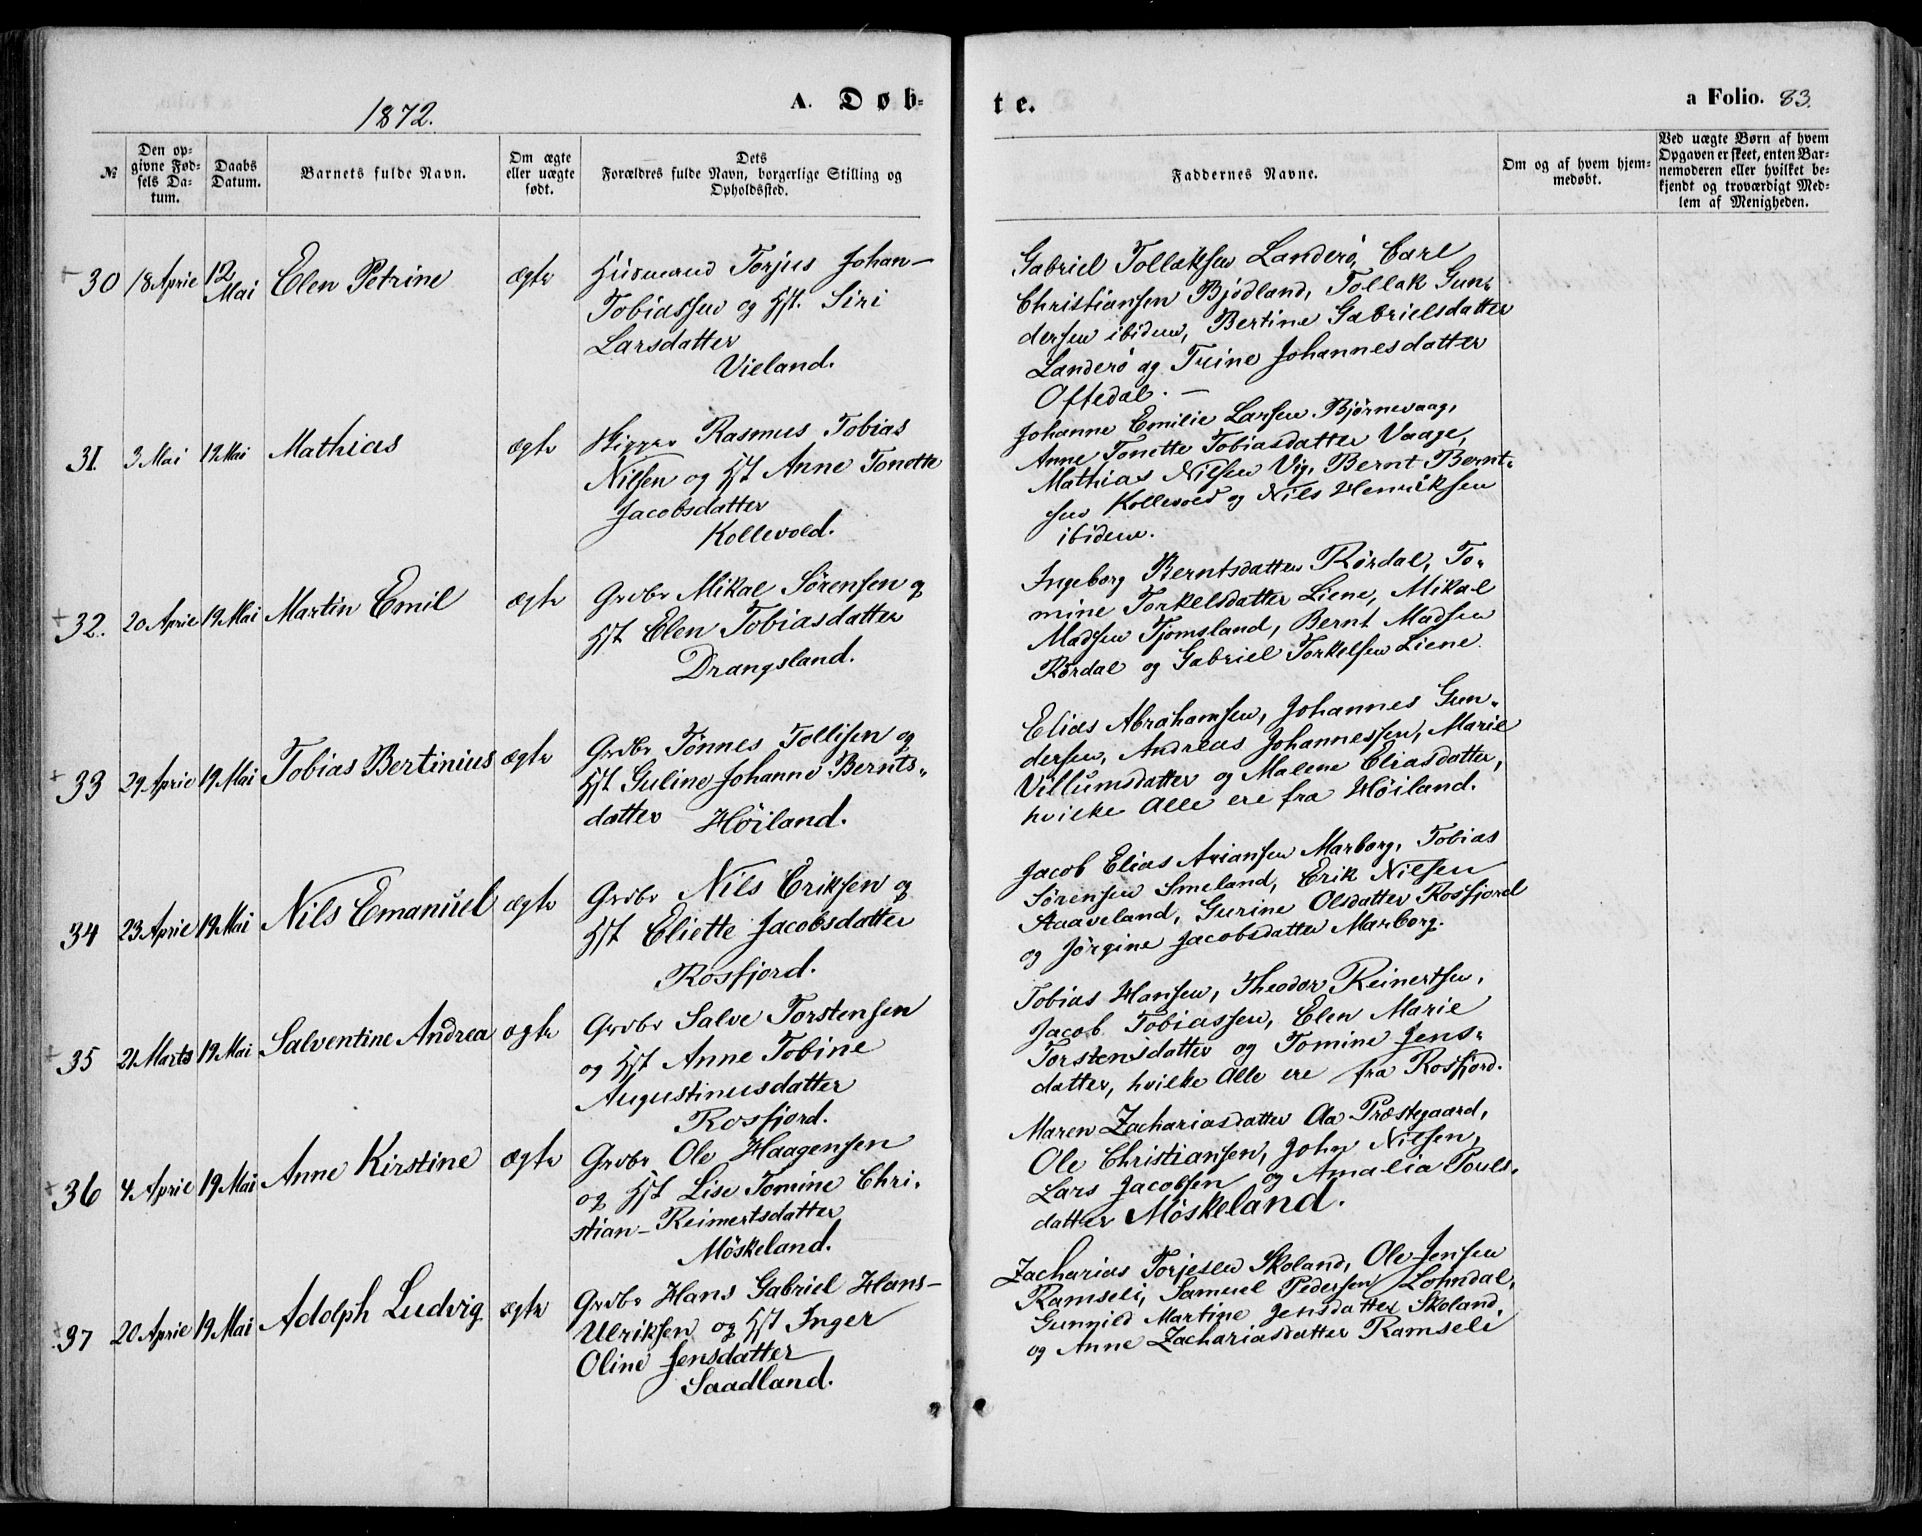 1872.
A. Døb-
te.
a Folio. 83.
№
Den op-
givne Fød-
sels Da-
tum.
Daabs
Datum.
Barnets fulde Navn.
Om ægte
eller uægte
født.
Dets
Forældres fulde Navn, borgerlige Stilling og
Opholdssted.
Faddernes Navne.
Om og af hvem hjem-
medøbt.
Ved uægte Børn af hvem
Opgaven er skeet, enten Bar-
nemoderen eller hvilket be-
kjendt og troværdigt Med-
lem af Menigheden.
30 18 April 12 Mai Elen Petrine ægte
Huusmand Torjus Johan-
Tobiassen og Hst. Siri
Larsdatter
Vieland.
Gabriel Tollaksen Landerö, Carl
Christiansen Bjödland, Tollak Gun-
dersen ibidem, Bertine Gabrielsdatter
Landerö og Trine Johannesdatter
Oftedal. —
31. 3 Mai 19 Mai Mathias ægte
Rasmus Tobias
Nilsen og Hst Anne Tonette
Jacobsdatter
Kollevold.
Johanne Emilie Larsen Bjørnevaag,
Anne Tonette Tobiasdatter Vaage,
Mathias Nilsen Vig, Bernt Bernt-
sen Kollevold og Nils Henriksen
ibidem.
32. 20 April 19 Mai Martin Emil ægte
Grdbr Mikal Sørensen og
Hst Elen Tobiasdatter
Drangsland.
Ingeborg Berntsdatter Rørdal, To-
mine Torkelsdatter Liene, Mikal
Madsen Tjomsland, Bernt Madsen
Rørdal og Gabriel Torkelsen Liene.
33 29 April 19 Mai Tobias Bertinius ægte
Grdbr Tønnes Tollisen og
Hst Guline Johanne Bernts-
datter Høiland.
Elias Abrahamsen, Johannes Gun-
dersen, Andreas Johannessen, Marie
Villumsdatter og Malene Eliasdatter,
hvilke Alle ere fra Høiland.
34 23 April 19 Mai Nils Emanuel ægte
Grdbr Nils Eriksen og
Hst Eliette Jacobsdatter
Rosfjord.
Jacob Elias Ariansen Marborg, Tobias
Sørensen Smeland, Erik Nilsen
Aaaveland, Gurine Olsdatter Rosfjord
og Jørgine Jacobsdatter Marborg.
35 21 Marts 19 Mai Salventine Andrea ægte
Grdbr Salve Torstensen
og Hst Anne Tobine
Augustinusdatter
Rosfjord.
Tobias Hansen, Theodor Reinertsen,
Jacob Tobiassen, Elen Marie
Torstensdatter og Tomine Jens-
datter, hvilke Alle ere fra Rosfjord.
36 4 April 19 Mai Anne Kirstine ægte
Grdbr Ole Haagensen
og Hst Lise Tomine Chri-
stian-Reinertsdatter
Møskeland.
Maren Zachariasdatter Aa Præstegaard,
Ole Christiansen, John Nilsen,
Lars Jacobsen og Amalia Pouls-
datter Møskeland.
37 20 April 19 Mai Adolph Ludvig ægte
Grdbr Hans Gabriel Hans-
Ulriksen og Hst Inger
Oline Jensdatter
Saadland.
Zacharias Torjesen Skoland, Ole Jensen
Ramseli, Samuel Pedersen Lohndal,
Gunnild Martine Jensdatter Skoland,
og Anne Zachariasdatter Ramseli